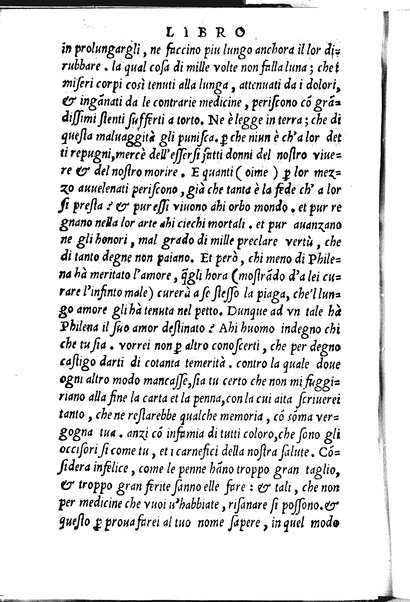 LIBRO
in prolungargli, ne faccino piu lungo anchora il lor di=
rubbare. la qual cosa di mille volte non falla luna; che i
miseri corpi così tenuti alla lunga, attenuati da i dolori,
& ingānati da le contrarie medicine, periscono cō grā-
dissimi stenti sufferti a torto. Ne è legge in terra; che di
questa maluaggità gli punisca. ꝑ che niun è ch'a lor det
ti repugni, mercè dell'essersi fatti donni del nostro viue=
re & del nostro morire. E quanti (oime) ꝑ lor mez=
zo auuelenati periscono, già che tanta è la fede ch'a lor
si presta? & pur essi viuono ahi orbo mondo. et pur re
gnano nella lor arte ahi ciechi mortali. et pur auanzano
ne gli honori, mal grado di mille preclare vertù, che
di tanto degne non paiano. Et però, chi meno di Phile=
na hà meritato l'amore, q̄gli hora (mostrādo d'a lei cu=
rare l'infinto male) curerà a se stesso la piaga, che'l lun=
go amore gli hà tenuta nel petto. Dunque ad vn tale hà
Philena il suo amor destinato? Ahi huomo indegno chi
che tu sia. vorrei non ꝑ altro conoscerti, che per degno
castigo darti di cotanta temerità. contro la quale doue
ogni altro modo mancasse, sia tu certo che non mi fuggi=
riano alla fine la carta et la penna, con la cui aita scriuerei
tanto, che ne restarebbe qualche memoria, cō sōma ver=
gogna tua. anzi cō infamia di tutti coloro, che sono gli
occisori si come tu, et i carnefici della nostra salute. Cō=
sidera infelice, come le penne hāno troppo gran taglio,
& troppo gran ferite sanno elle fare: & tali, che non
per medicine che vuoi u'habbiate, risanare si possono. &
questo ꝑ proua farei al tuo nome sapere, in quel modo